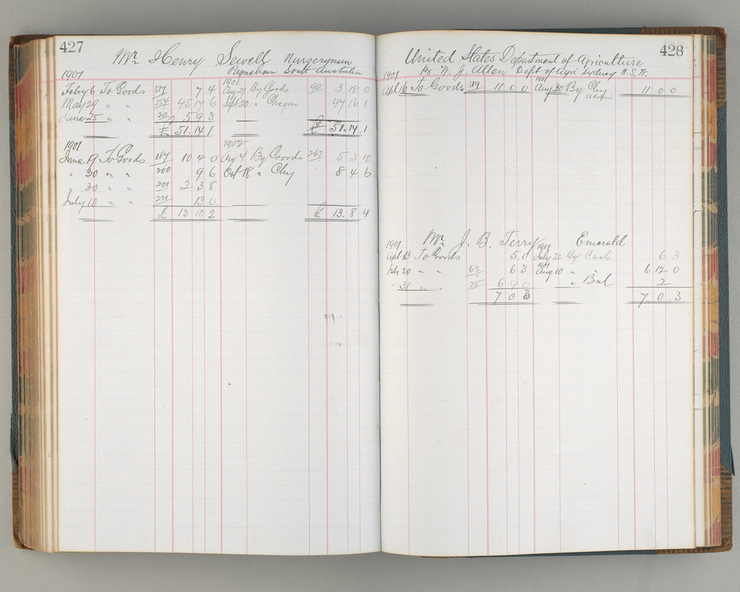 427
Mr Henry Sewell Nurseryman
Payneham South Australia
1901 1901
Feby 6 To Goods 7 4 Aug 27 By Gods 90 3 18 0
May 29 " " 45 17 6 Sept 20 " Cheques 47 16 1
June 25 " " 5 9 3
£ 51.14.1 £ 51.14.1
1901 1902
June 19 To Goods 187 10 4 0 Aug 4 By Goods 267 5 3 10
" 20 " " 200 9 6 Oct 18 " Chq 8 4 6
" 30 " " 201 2 3 8
July 10 " " 221 13 0
£ 13 10 2 £ 13.8 4
428
United States Department of Agriculture
Pr W. J. Allen Dept of Agri Sydney N.S.W.
1901 1901
Apl 16 To Goods 11 0 0 Aug 30 By Chq 11 0 0
Mr J. B. Terry Emerald
1901
Apl 13 To Goods 5 0 July 22 By Cash 6 3
July 20 " " 63 6 3 Aug 10 " " 6 12 0
" 31 " " 75 6 9 0 " Bal 2
7 0 3 7 0 3